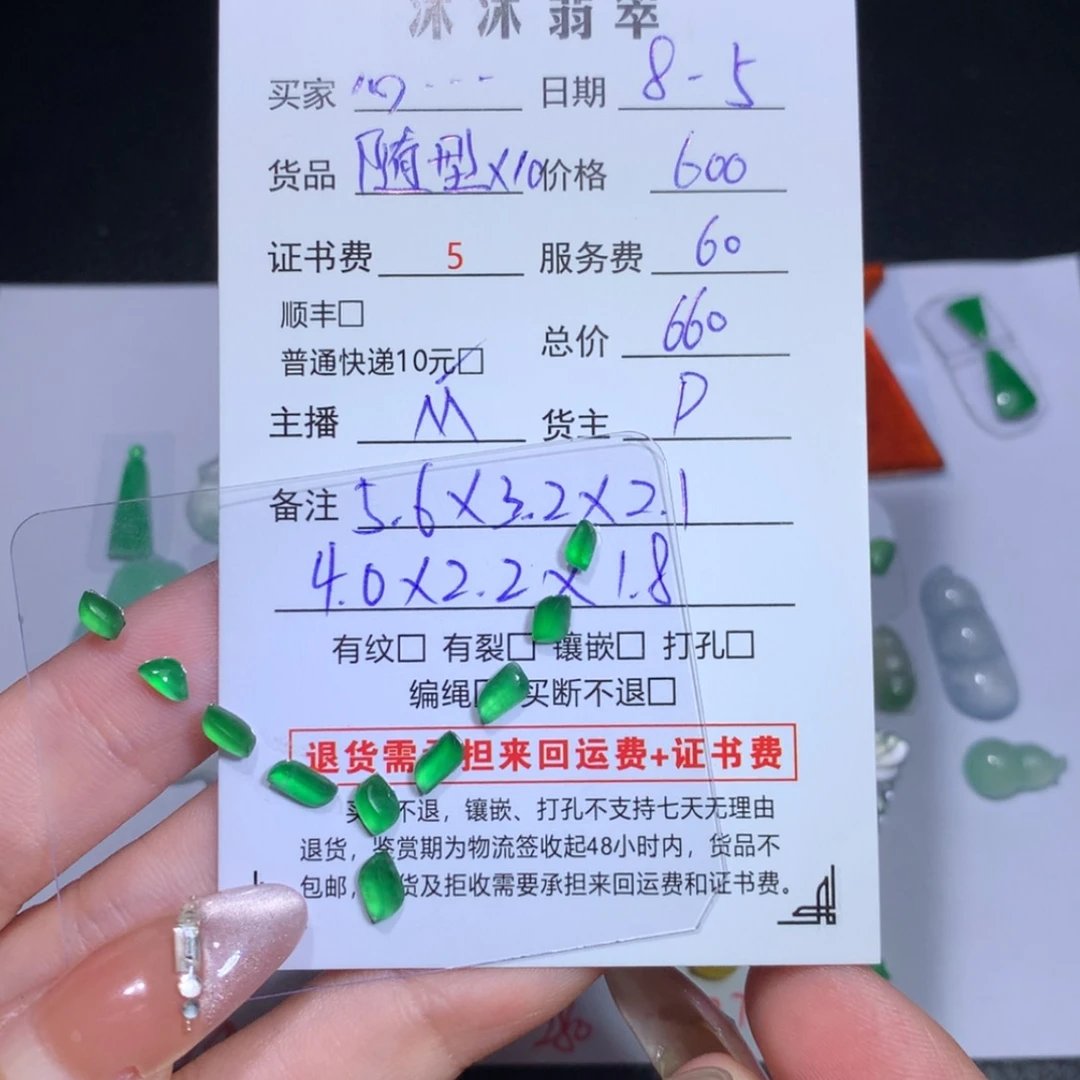 沐沐翡翠
买家 日期 8-5
货品 随型x10 价格 600
证书费 5 服务费 60
顺丰□
普通快递10元□
总价 660
主播 M 货主 P
备注 5.6x3.2x2.1
4.0x2.2x1.8
有纹□ 有裂□ 镶嵌□ 打孔□
编绳□ 买断不退□
退货需 担来回运费+证书费
买 不退，镶嵌、打孔不支持七天无理由
退货，鉴赏期为物流签收起48小时内，货品不
包邮， 货及拒收需要承担来回运费和证书费。
280